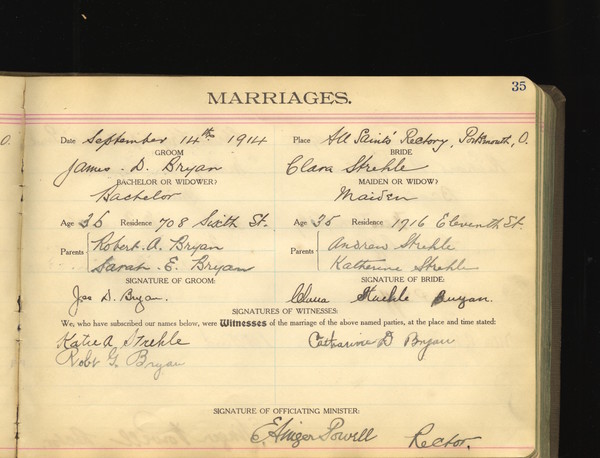 35
MARRIAGES.
O.
Date September 14th 1914 Place All Saints' Rectory, Portsmouth, O.
GROOM BRIDE
James. D. Bryan Clara Strehle
BACHELOR OR WIDOWER? MAIDEN OR WIDOW?
Bachelor Maiden
Age 36 Residence 708 Sixth St. Age 35 Residence 1716 Eleventh St.
Parents Robert. A. Bryan Parents Andrew Strehle
Sarah. E. Bryan Katherine Strehle
SIGNATURE OF GROOM: SIGNATURE OF BRIDE:
Jas D. Bryan. Clara Strehle Bryan.
SIGNATURES OF WITNESSES:
We, who have subscribed our names below, were Witnesses of the marriage of the above named parties, at the place and time stated:
Katie A Strehle Catharine D Bryan
Robt G. Bryan
SIGNATURE OF OFFICIATING MINISTER:
E. Ainger Powell Rector.